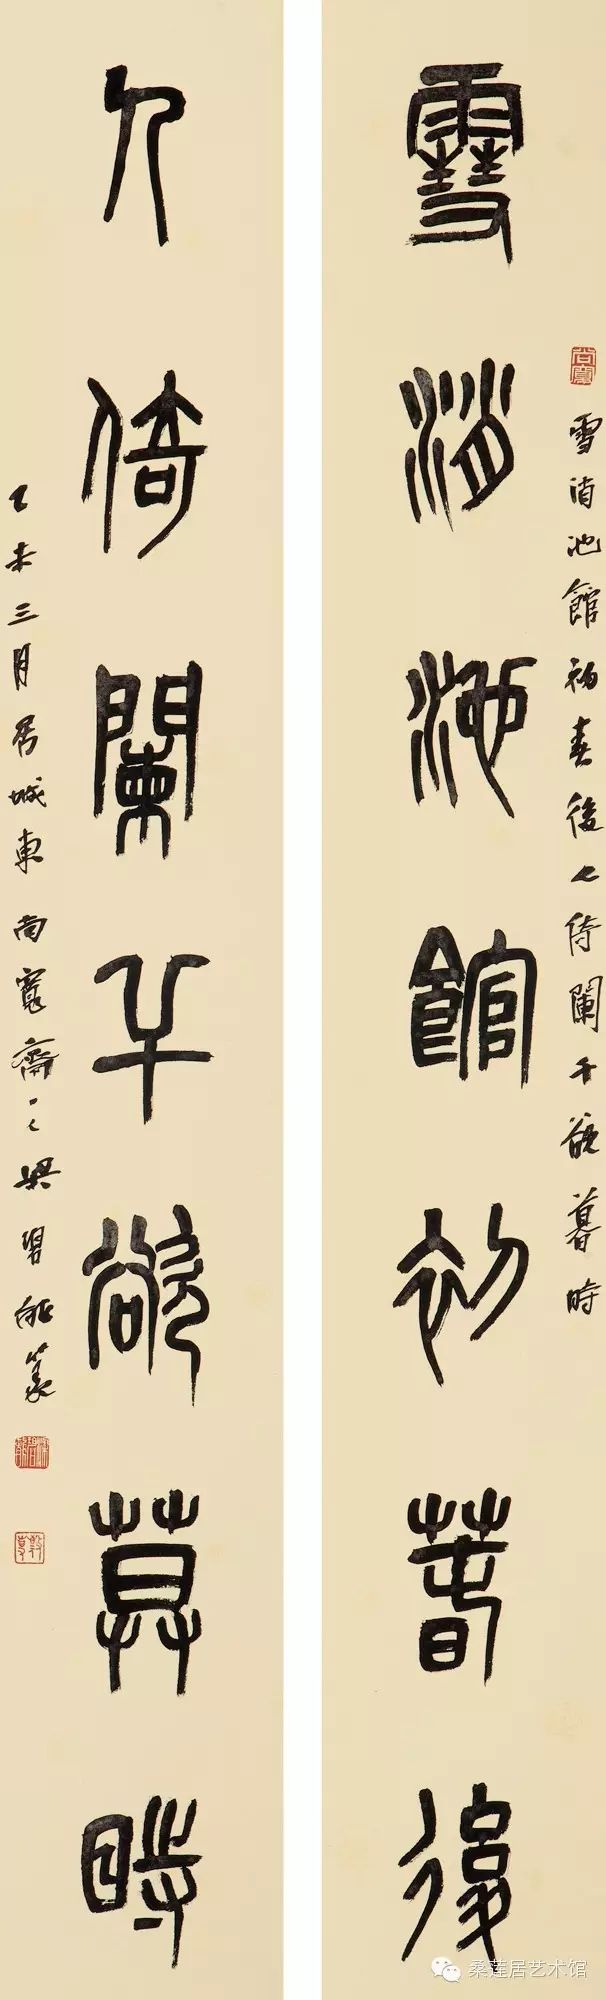 雪消池館初春後
人倚闌干欲暮時
雪消池館初春後人倚闌干欲暮時
乙未三月居城東尚寬齋之梁碧能篆
尚寬
桑莲居艺术馆